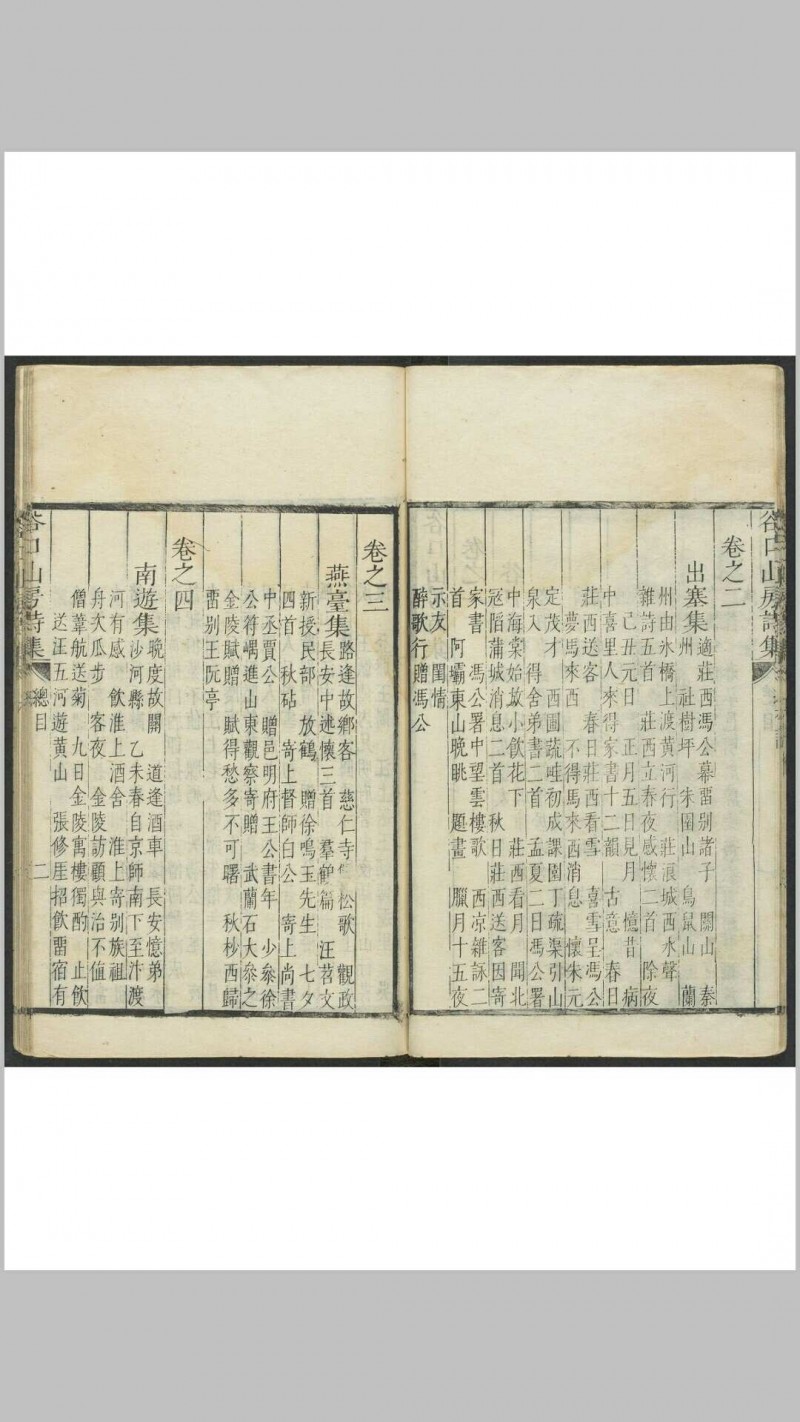 谷口山房詩集
卷之二
出塞集
適莊西馮公幕畱別諸子 關山 秦
州 社樹坪 朱圉山 鳥鼠山 蘭
州由氷橋上渡黄河行 莊浪城西水聲
雜詩五首 莊西立春夜感懷二首 除夜
己丑元日 正月五日見月 憶昔 病
中喜里人來得家書十二韻 古意 春日
莊西送客 春日莊西看雪 喜雪呈馮公
夢馬來西 不得馬來西消息 懷朱元
定茂才 西圃蔬畦初成課園丁疏渠引山
泉入 得舍弟書二首 孟夏二日馮公署
中海棠始放小飲花下 莊西看月 聞北
冦陷蒲城消息二首 秋日莊西送客因寄
家書 馮公署中望雲樓歌 西凉雜詠二
首 阿壩東山晚眺 題畫 臘月十五夜
示友 閨情
醉歌行贈馮公
卷之三
燕臺集
路逢故鄉客 慈仁寺 松歌 觀政
長安中述懷三首 羣鶴篇 汪苕文
新授民部 放鶴 贈徐鳴玉先生 七夕
四首 秋砧 寄上督師白公 寄上尚書
中丞賈公 贈邑明府王公書年 少叅徐
公符嵎進山東觀察寄贈 武蘭石大叅之
金陵賦贈 賦得愁多不可曙 秋杪西歸
畱別王阮亭
卷之四
南遊集
晩度故關 道逢酒車 長安憶弟
沙河縣 乙未春自京師南下至汴渡
河有感 飲淮上酒舍 淮上寄別族祖
舟次瓜步 客夜 金陵訪顧與治不值
僧葦航送菊 九日金陵寓樓獨酌 止飲
送汪五河遊黄山 張修厓招飲畱宿有
谷口山房詩集
總目
二